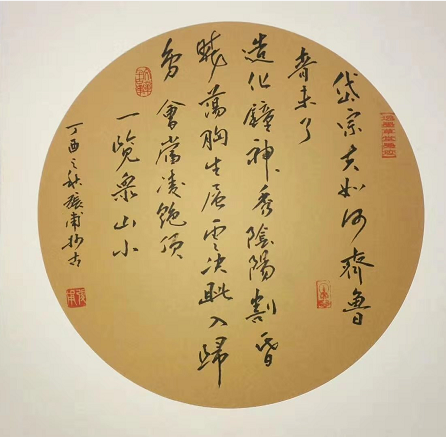 岱宗夫如何齊魯
青未了
造化鐘神秀陰陽割昏
曉蕩胸生層雲決眦入歸
鳥會當凌絕頂
一覽衆山小
丁酉之秋振甫抄古